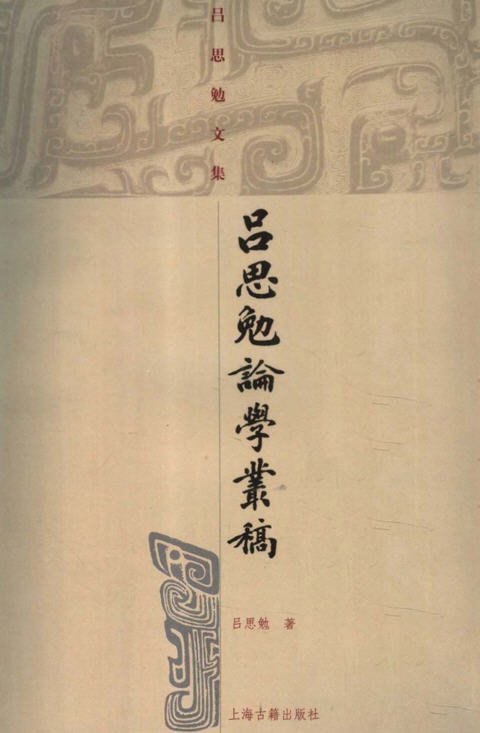 吕思勉文集
吕思勉論學叢稿
吕思勉 著
上海古籍出版社